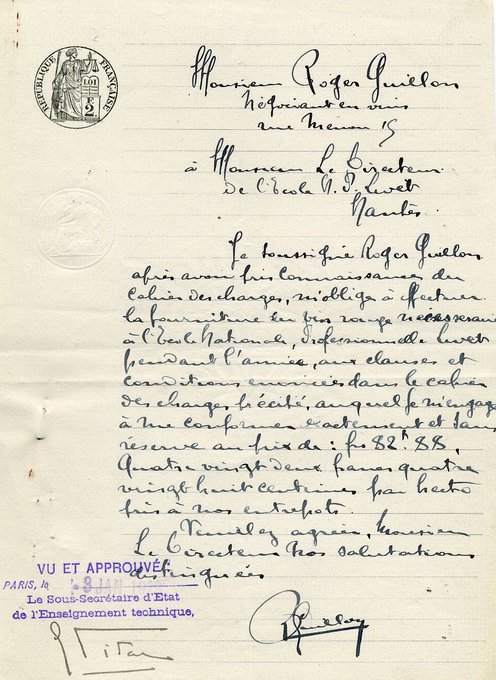 RÉPUBLIQUE FRANÇAISE
LOI
F
2
Monsieur Roger Guillon
Négociant en vins
rue Menou 15
à Monsieur Le Directeur
de l'Ecole N. P. Livet
Nantes
Je soussigné Roger Guillon
après avoir pris connaissance du
cahier des charges, m'oblige à effectuer
la fourniture du vin rouge nécessaire
à l'Ecole Nationale, Professionnelle Livet
pendant l'année, aux clauses et
conditions énoncées dans le cahier
des charges précité, auquel je m'engage
à me conformer exactement et sans
réserve au prix de : frs 82f.88,
Quatre vingt deux francs quatre
vingt huit centimes par hecto
pris à nos entrepots.
Veuillez agréer, Monsieur
Le Directeur nos salutations
distinguées
VU ET APPROUVÉ:
PARIS, le JAN
Le Sous-Secrétaire d'Etat
de l'Enseignement technique,
RGuillon